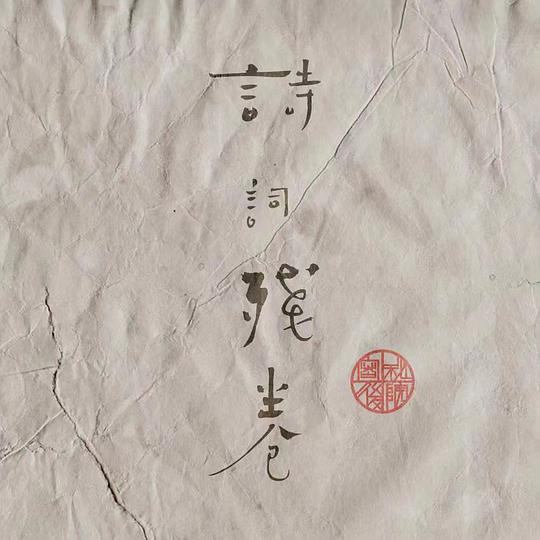 詩詞殘卷